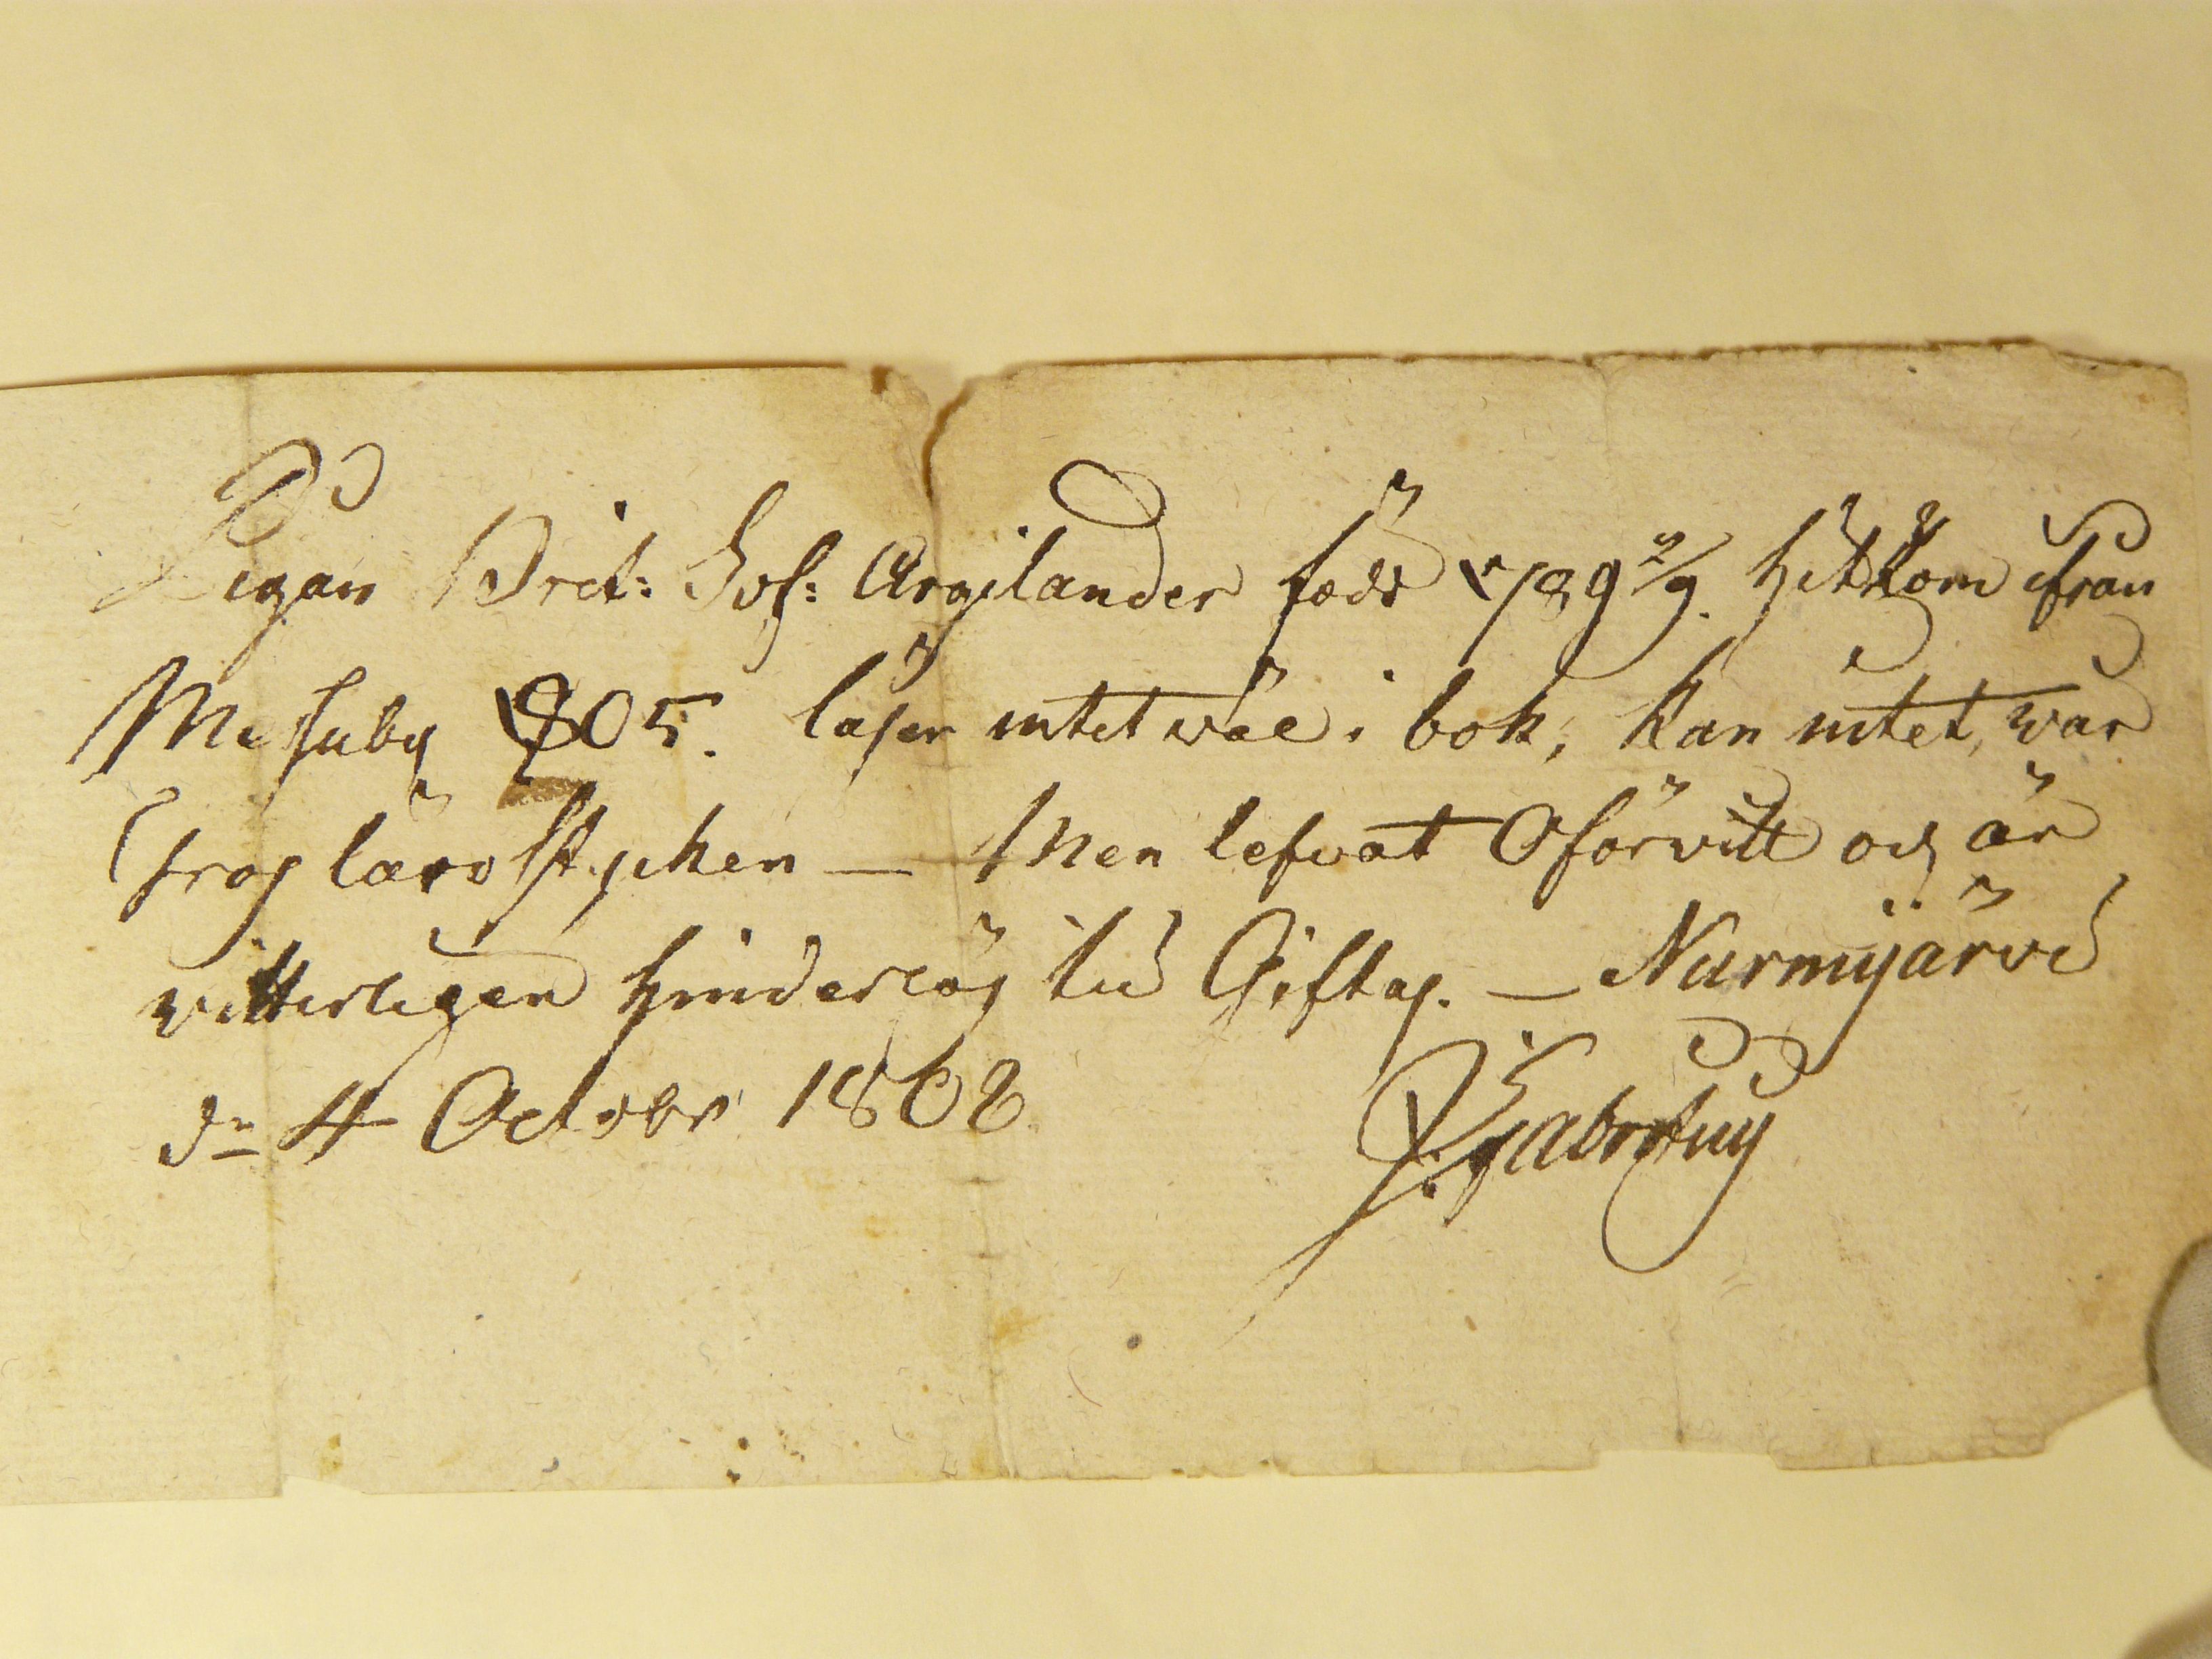 Pigan Brit: Sof: Argilander född 1789 2/9. hitkom ifrån
Messuby 805. läser intet väl i bok, kan intet, war
Chros läro stycken — Men lefvat Oförvitt och är
vitterligen hinderlös till Giftas. — Nurmijärvi
dn 4 October 1808